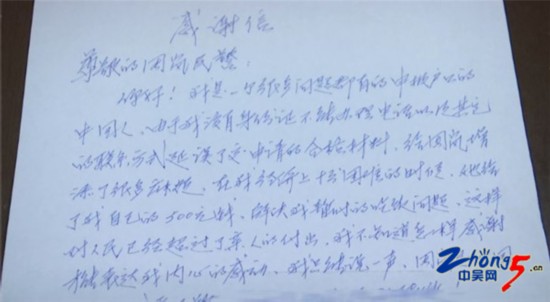 感谢信
尊敬的周岚民警:
你好!我是一个很多问题都有的中挑户口的
中国人,由于我没有身份证不能办理电话以及其它
的联系方式延误了交申请的合格材料,给周岚增
添了很多麻烦,在我经济上十分困难的时候,她给
了我自己的500元钱,解决我暂时的吃饭问题,这样
对人民已经超过了亲人的付出,我不知道怎样感谢
我内心的感动,我只能说一声,周
Zhong5.cn
中吴网